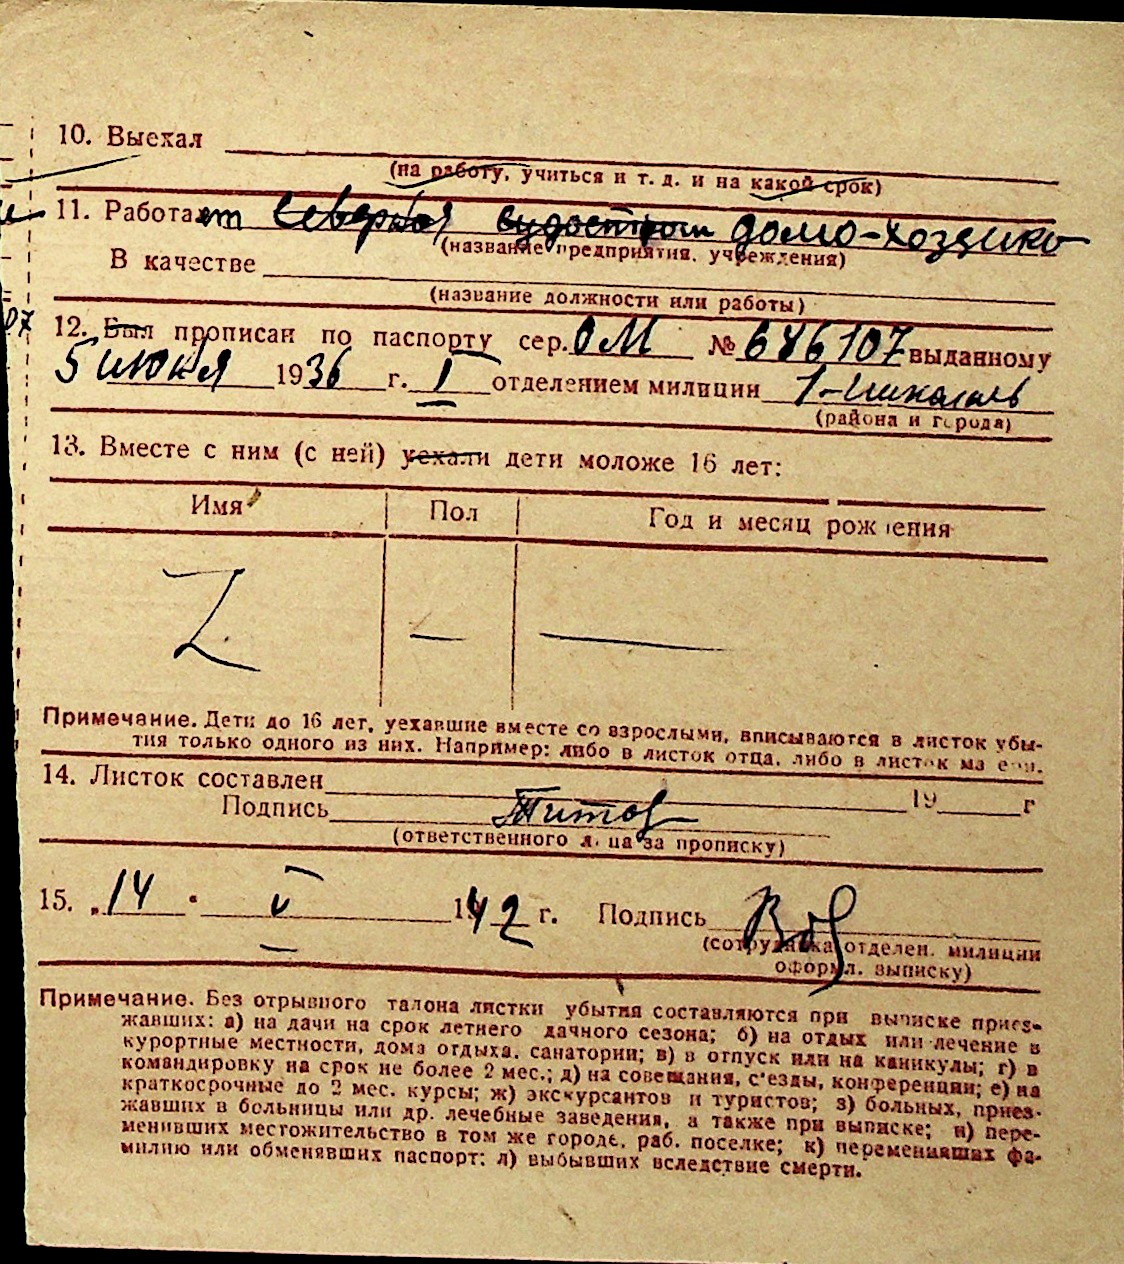 10. Выехал
(на работу, учиться и т. д. и на какой срок)
11. Работает домо-хозяйка
(название предприятия, учреждения)
В качестве
(название должности или работы)
12. Был прописан по паспорту сер. ОМ № 686107 выданному
5 июня 1936 г. I отделением милиции
(района и города)
13. Вместе с ним (с ней) уехали дети моложе 16 лет:
Имя Пол Год и месяц рождения
Z — —
Примечание. Дети до 16 лет, уехавшие вместе со взрослыми, вписываются в листок убы-
тия только одного из них. Например: либо в листок отца, либо в листок матери.
14. Листок составлен 19 г
Подпись Титов
(ответственного лица за прописку)
15. „14" V 1942 г. Подпись
(сотрудника отделен. милиции
оформл. выписку)
Примечание. Без отрывного талона листки убытия составляются при выписке приез-
жавших: а) на дачи на срок летнего дачного сезона; б) на отдых или лечение в
курортные местности, дома отдыха, санатории; в) в отпуск или на каникулы; г) в
командировку на срок не более 2 мес.; д) на совещания, с'езды, конференции; е) на
краткосрочные до 2 мес. курсы; ж) экскурсантов и туристов; з) больных, приез-
жавших в больницы или др. лечебные заведения, а также при выписке; и) пере-
менивших местожительство в том же городе, раб. поселке; к) переменивших фа-
милию или обменявших паспорт; л) выбывших вследствие смерти.